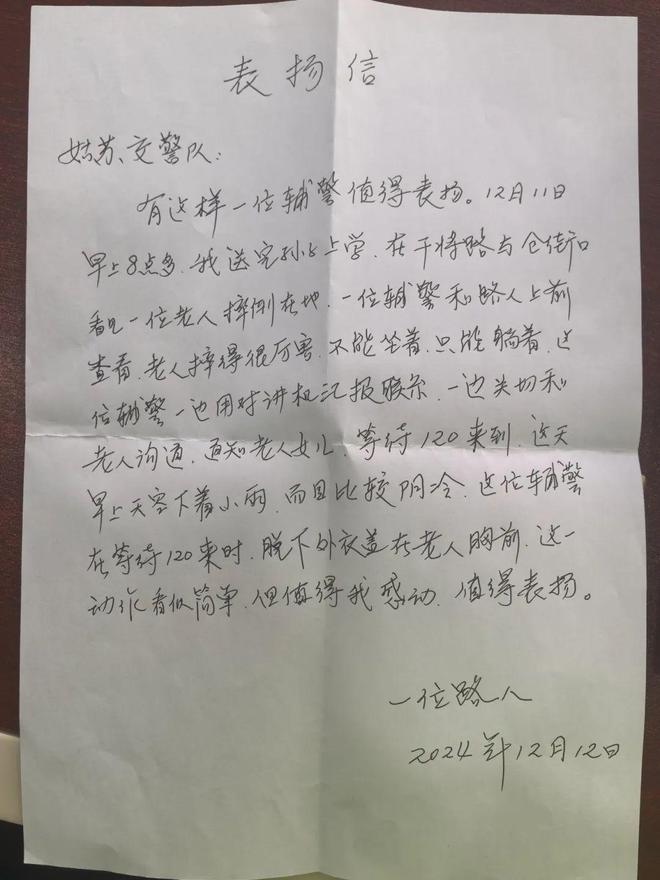 表扬信
姑苏交警队:
有这样一位辅警值得表扬。12月11日
早上8点多,我送完孙子上学,在干将路与仓街口
看见一位老人摔倒在地,一位辅警和路人上前
查看,老人摔得很厉害,不能坐着,只能躺着,这
位辅警一边用对讲机汇报联系,一边关切和
老人沟通,通知老人女儿,等待120来到,这天
早上天空下着小雨,而且比较阴冷,这位辅警
在等待120来时,脱下外衣盖在老人胸前,这一
动作看似简单,但值得我感动,值得表扬。
一位路人
2024年12月12日